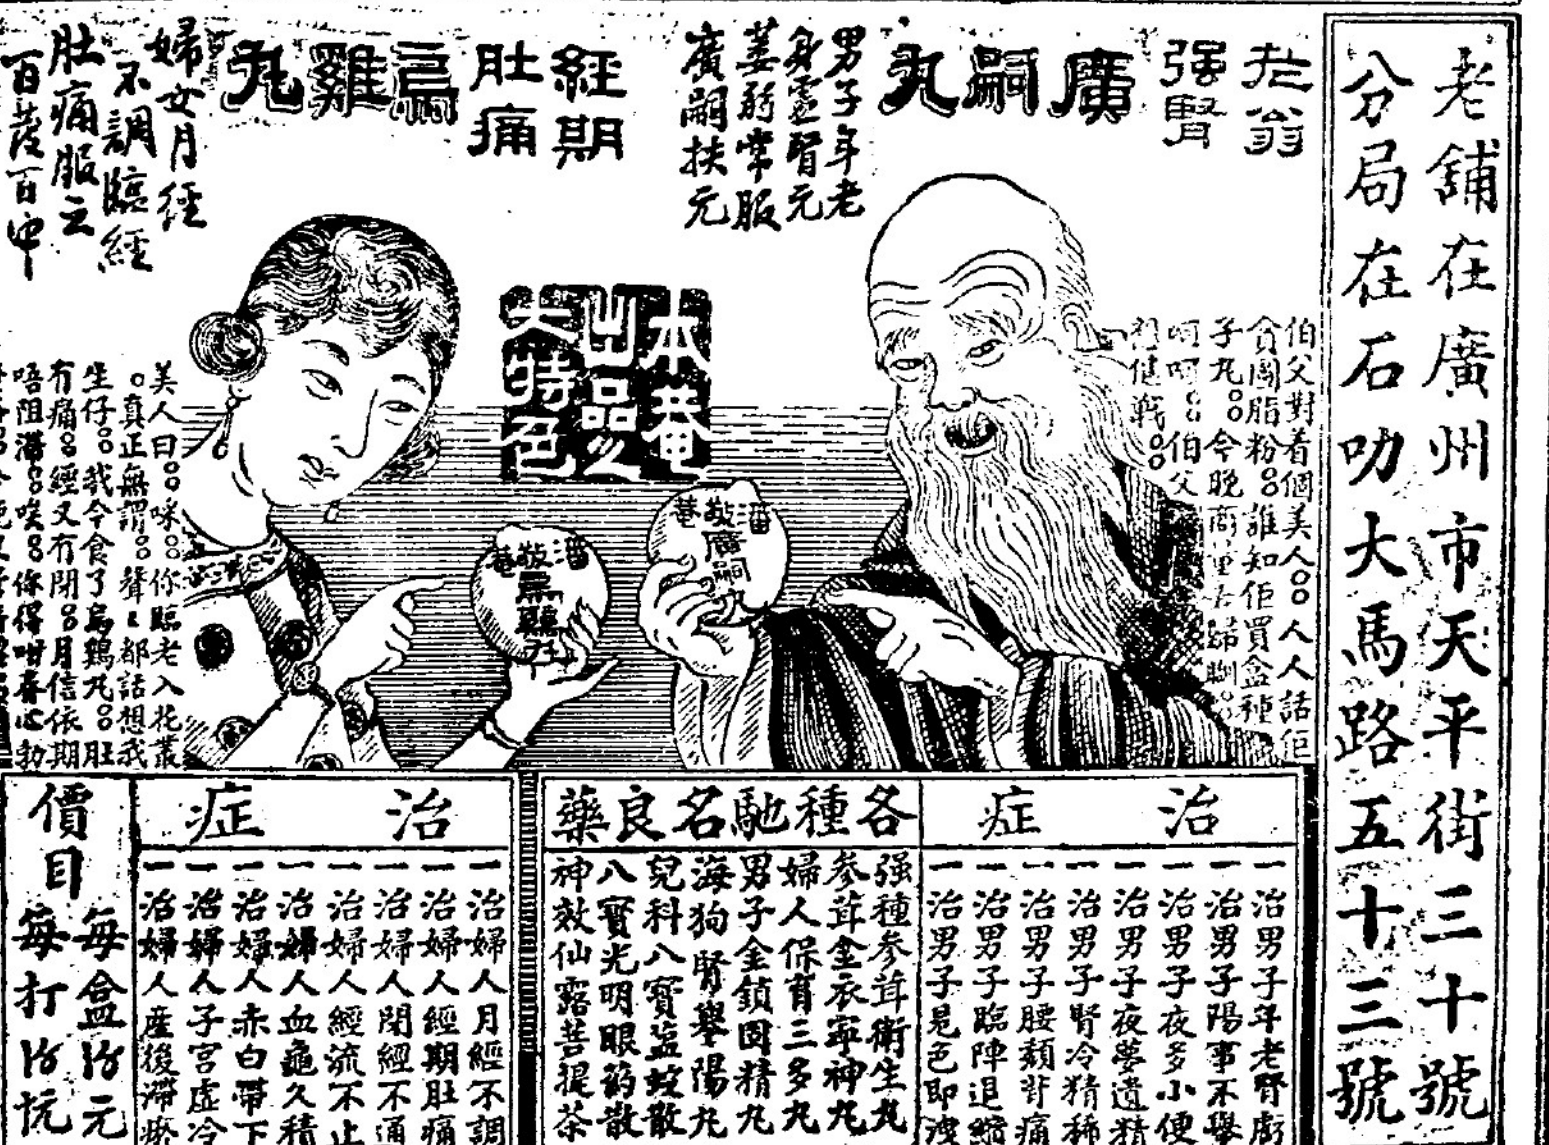 老舖在廣州市天平街三十號
分局在石叻大馬路五十三號
老翁
强腎
廣嗣丸
男子年老
身虛腎元
萎弱常服
廣嗣扶元
經期
肚痛
烏雞丸
婦女月經
不調臨經
肚痛服之
百發百中
伯父對着個美人。。人人話佢
貪圖脂粉。。誰知佢買盒種
子丸。。今晚
呵呵。。伯父
健戰。。
本菴
出品之
大特色
潘敬菴
廣嗣丸
潘敬菴
烏雞丸
美人曰。。咪。。你臨老入花叢
。真正無謂。。聲聲都話想我
生仔。。我今食了烏鷄丸。。肚
有痛。。經又有閉。。月信依期
唔阻滯。。唉。。你得咁春心勃
治症
一治男子年老腎虧
一治男子陽事不舉
一治男子夜多小便
一治男子夜夢遺精
一治男子腎冷精稀
一治男子腰頹背痛
一治男子臨陣退縮
一治男子見色即洩
各種馳名良藥
强種參茸衛生丸
參茸金衣寧神丸
婦人保育三多丸
男子金鎖固精丸
海狗腎舉陽丸
兒科八寶鹽蛇散
八寶光明眼藥散
神效仙露菩提茶
治症
一治婦人月經不調
一治婦人經期肚痛
一治婦人閉經不通
一治婦人經流不止
一治婦人血龜久積
一治婦人赤白帶下
一治婦人子宮虛冷
一治婦人產後滯瘀
價目
每盒元
每打